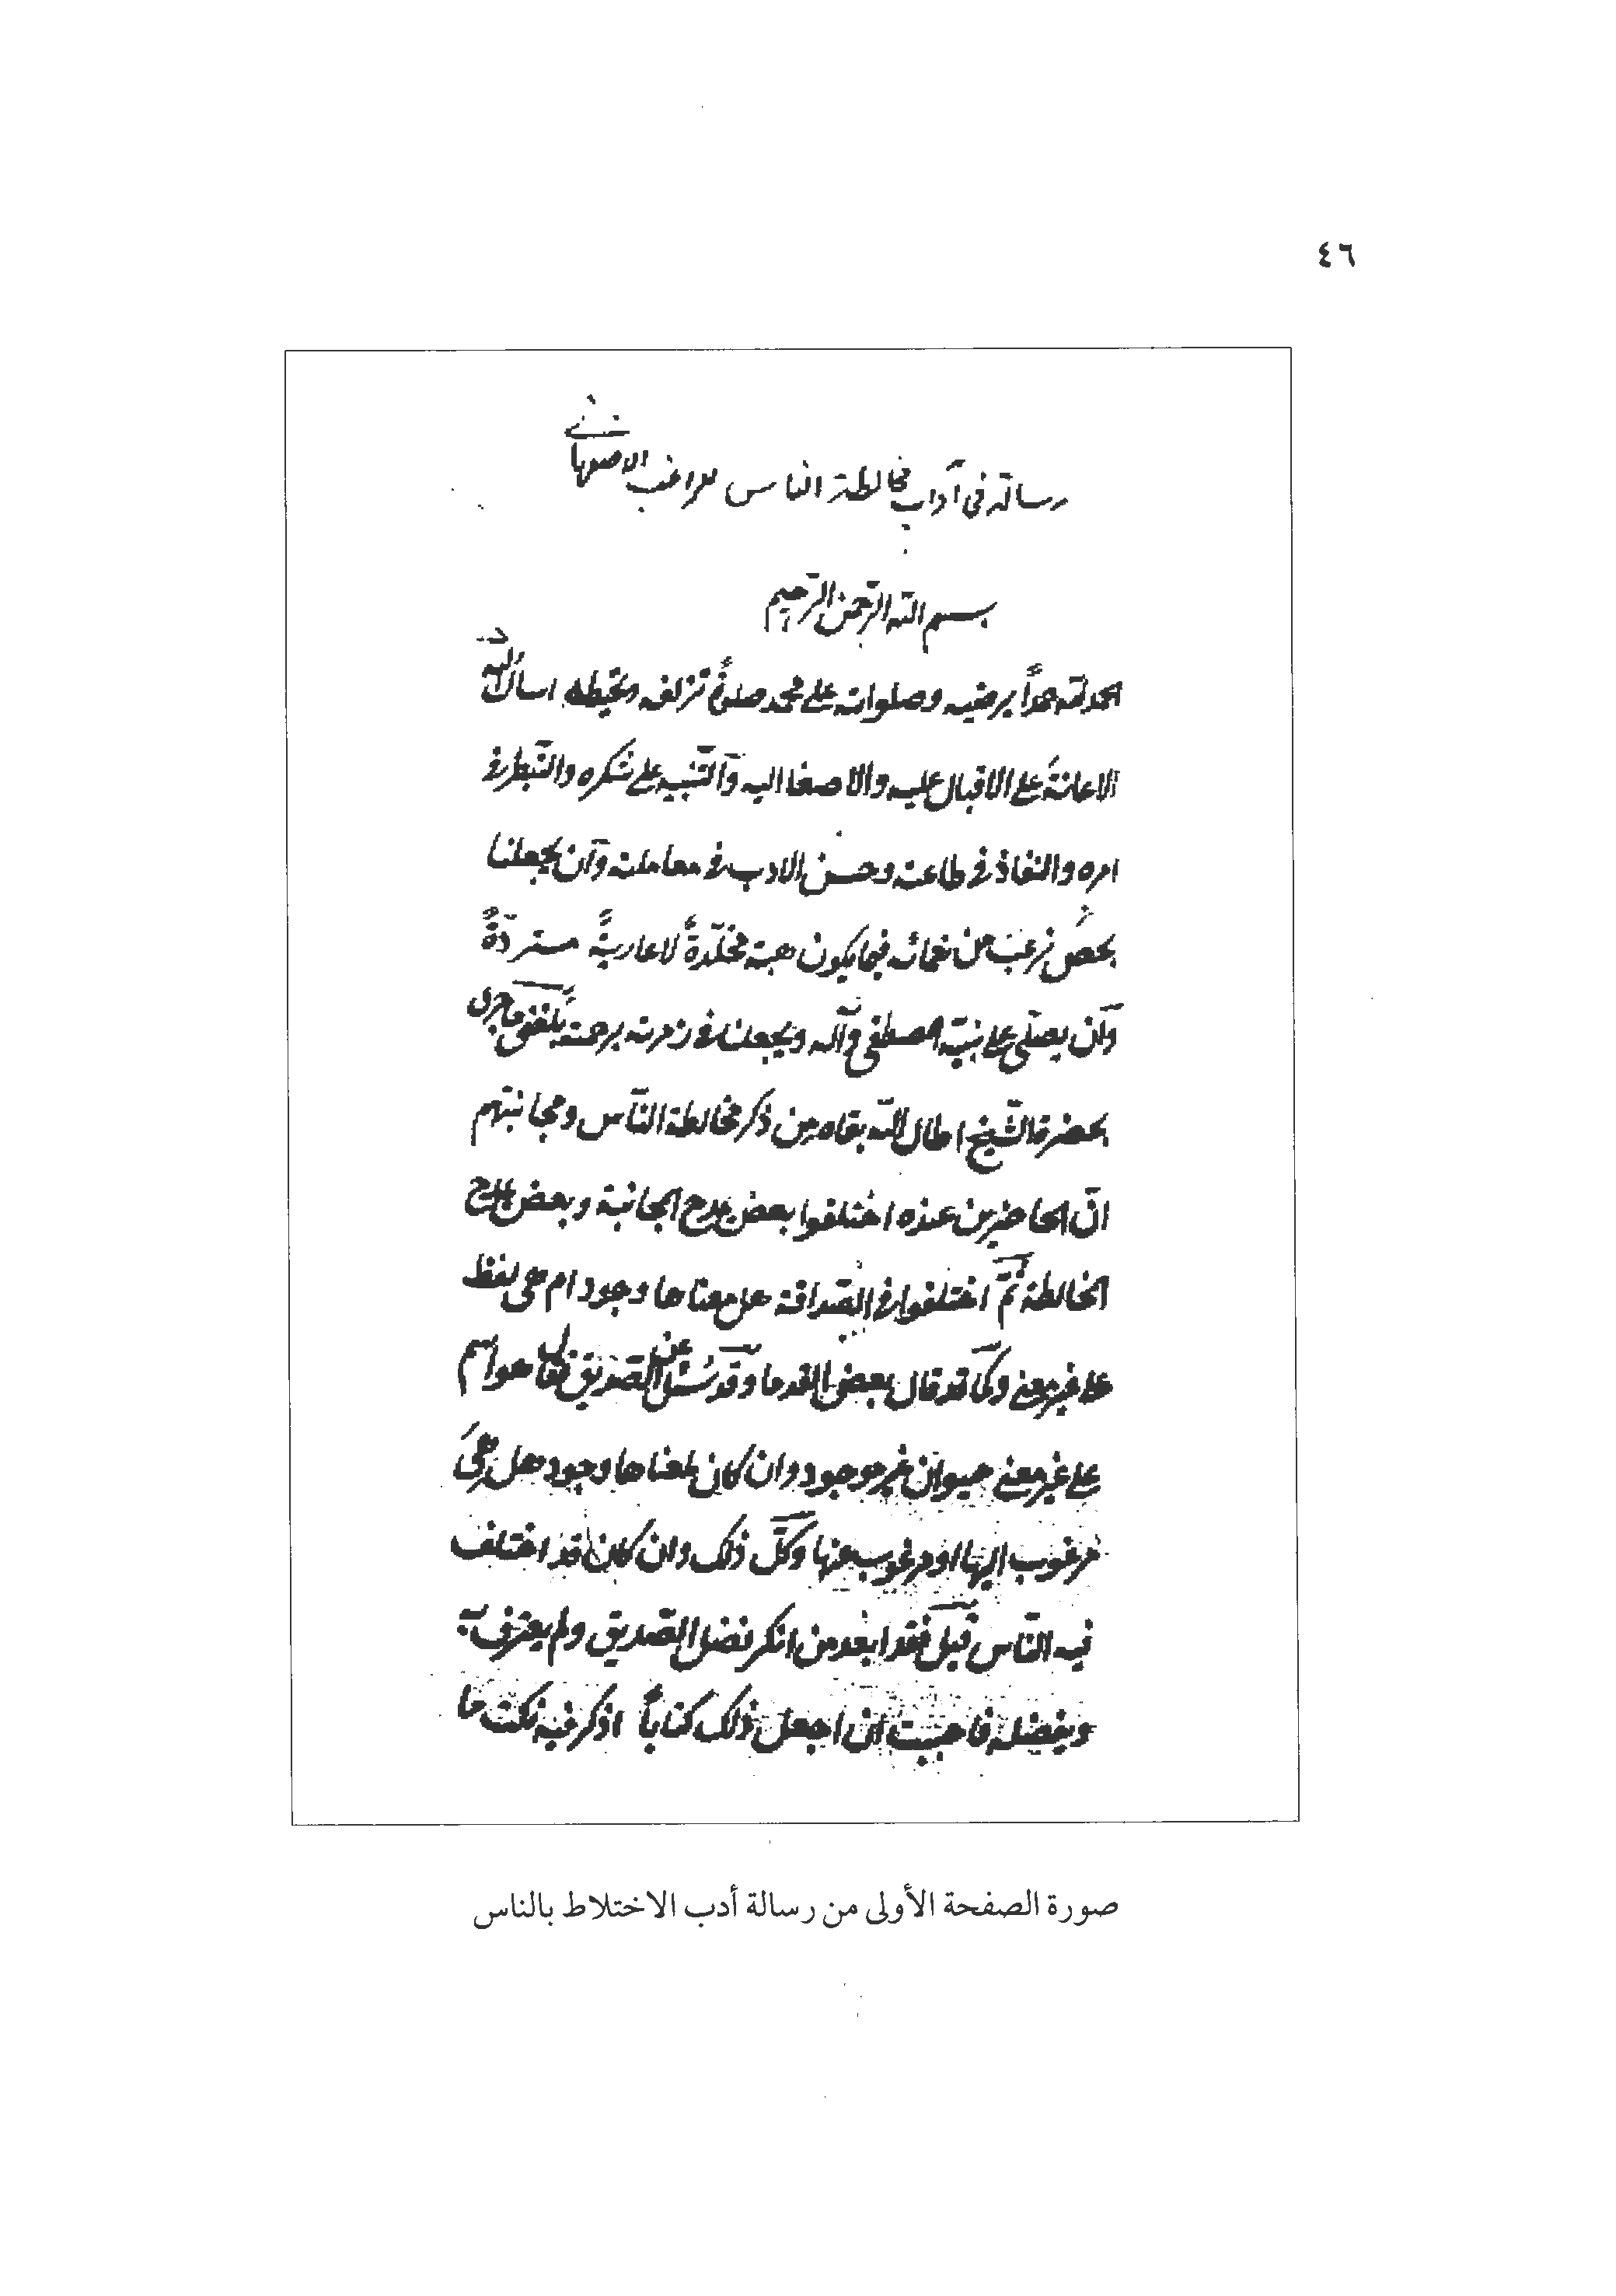 ٤٦
رسالة في آداب مخالطة الناس للراغب الاصفهاني
بسم الله الرحمن الرحيم
الحمد لله حمداً يرضيه وصلواته على محمد صلوةً تزلفه وتحيطه اسأل الله
الاعانة على الاقبال عليه والاصغا اليه وآلتنبيه على شكره والتبطر في
امره والنفاذ في طاعته وحسن الادب في معاملته وآن يجعلنا
بحضرٍ نرغب من نعمائه فيما يكون هبة مخلّدةً لا عاريةً مستردّةً
وآن يصلّى على نبيّه المصطفى وآله ويجعلنا في زمرته برحمته بلغني ما جرى
بحضرة الشّيخ اطال اللّه بقاه من ذكر مخالطة النّاس ومجانبتهم
انّ الحاضرين عنده اختلفوا بعض يمدح المجانبة وبعض يمدح
المخالطة ثمّ اختلفوا في الصّداقة هل معناها وجود ام هى لفظ
على غير معنى وكما قد قال بعض القدما وقد سُئل عن الصّديق فقال هو اسم
على غير معنى حيوان غير موجود وان كان لمعناها وجود هل هى
مرغوب اليها او مرغوب عنها وكلّ ذلك وان كان قد اختلف
فيه النّاس قبل فقد ابعد من انكر فضل الصّديق ولم يعترف به
وبفضله فاحببت ان اجعل ذلك كتاباً اذكر فيه نكت ما
صورة الصفحة الأولى من رسالة أدب الاختلاط بالناس